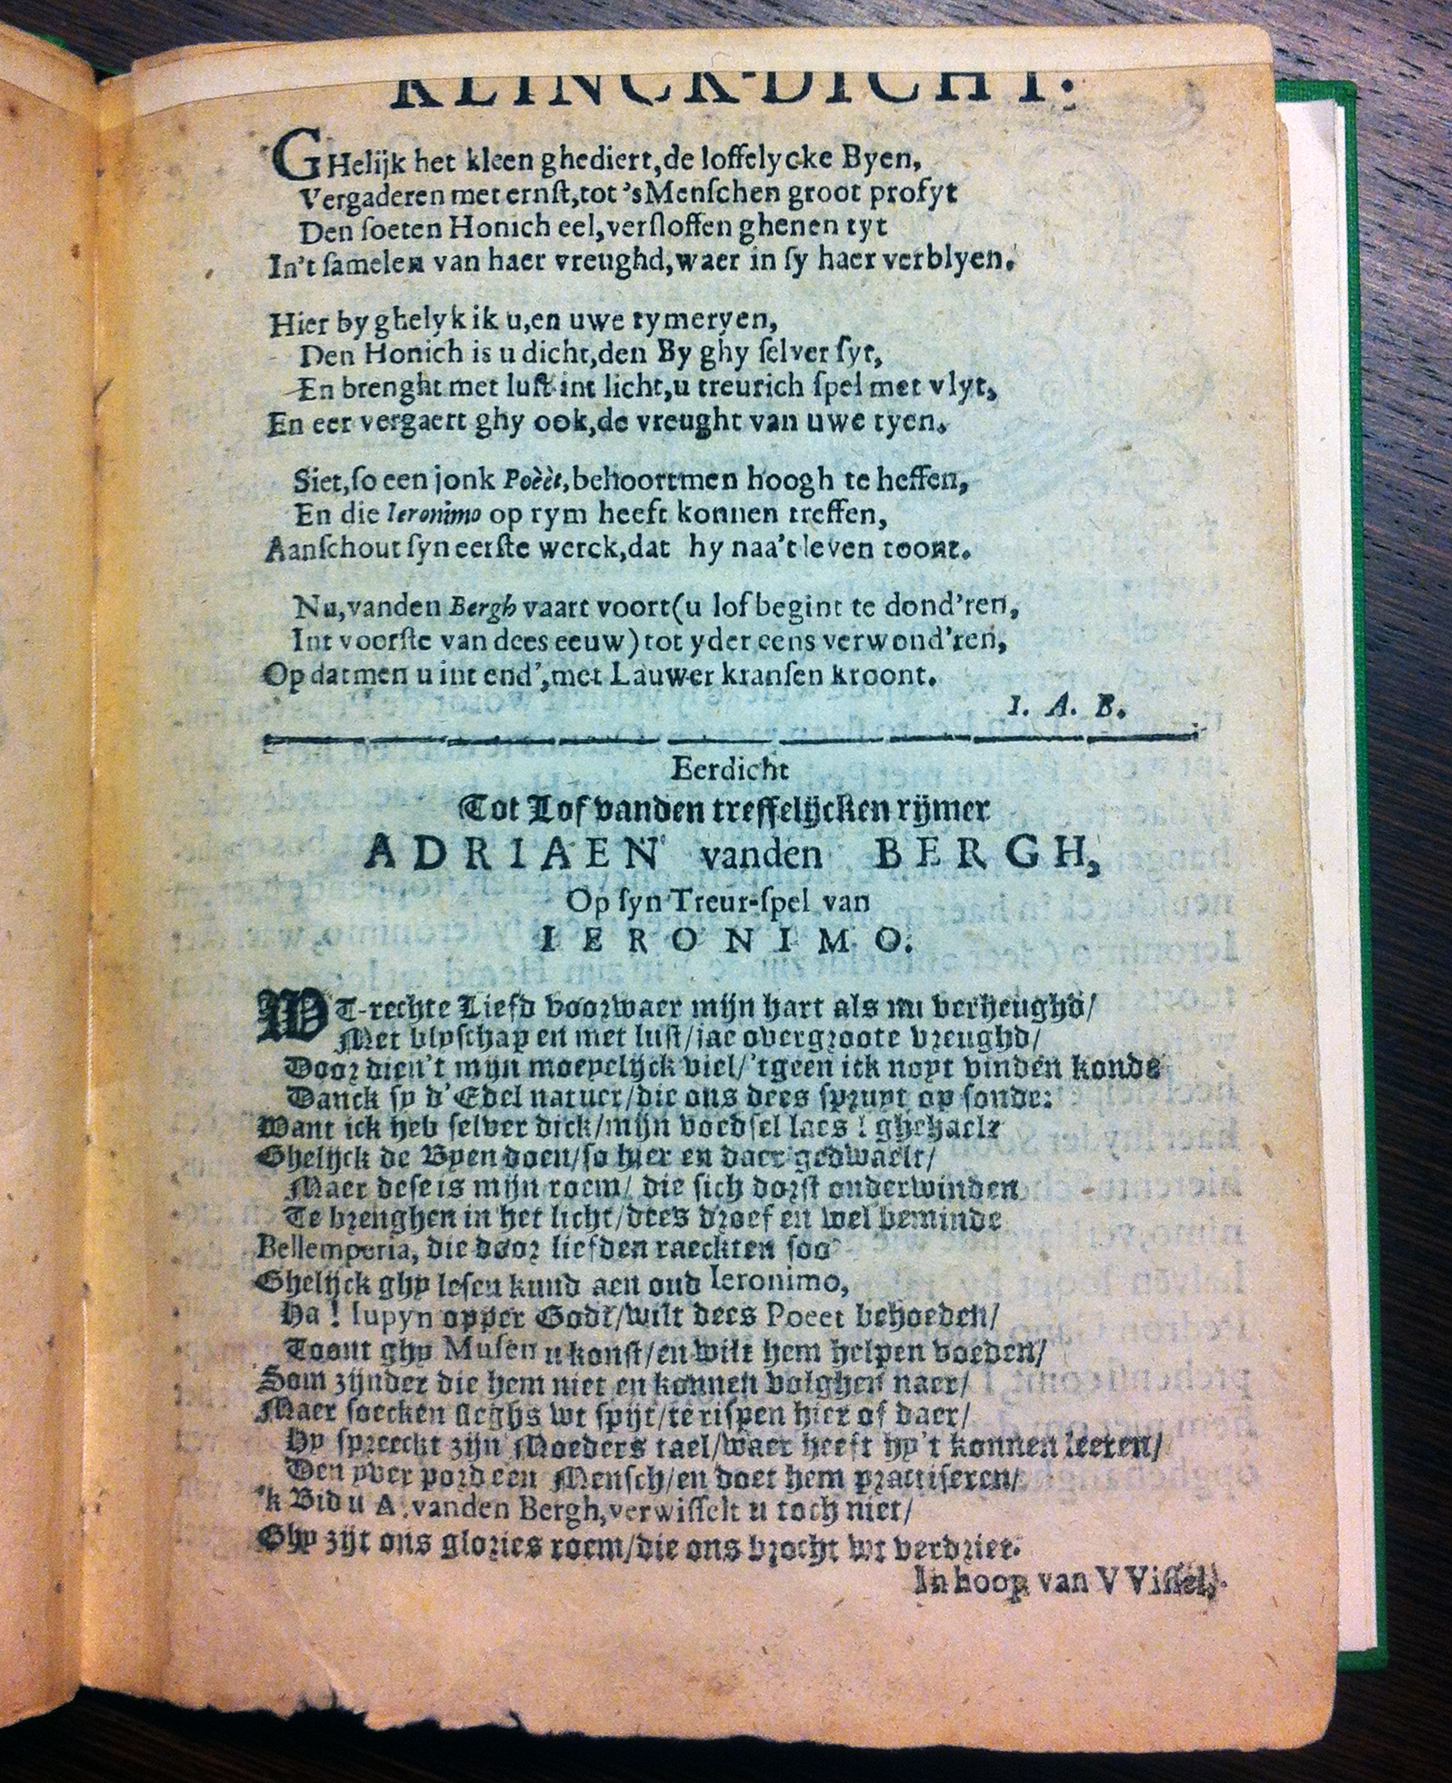 KLINCK-DICHT.
GHelijk het kleen ghediert, de loffelycke Byen,
Vergaderen met ernſt, tot 'sMenſchen groot profyt
Den ſoeten Honich eel, verſloffen ghenen tyt
In't ſamelen van haer vreughd, waer in ſy haer verblyen.
Hier by ghelyk ik u, en uwe rymeryen,
Den Honich is u dicht, den By ghy ſelver ſyt,
En brenght met luſt int licht, u treurich ſpel met vlyt,
En eer vergaert ghy ook, de vreught van uwe tyen.
Siet, ſo een jonk Poëèt, behoortmen hoogh te heffen,
En die Ieronimo op rym heeft konnen treffen,
Aanſchout ſyn eerſte werck, dat hy naa't leven toont.
Nu, vanden Bergh vaart voort (u lof begint te dond'ren,
Int voorſte van dees eeuw) tot yder eens verwond'ren,
Op datmen u int end', met Lauwer kranſen kroont.
I. A. B.
Eerdicht
Tot Lof vanden treffelijcken rijmer
ADRIAEN vanden BERGH,
Op ſyn Treur-ſpel van
IERONIMO.
WT-rechte Liefd voorwaer mijn hart als nu verheughd/
Met blyſchap en met luſt/jae overgroote vreughd/
Door dien't mijn moeyelijck viel/'tgeen ick noyt vinden konde
Danck ſy d'Edel natuer/die ons dees ſpruyt op ſonde:
Want ick heb ſelver dick/mijn voedſel laes! ghehaelt
Ghelijck de Byen doen/ſo hier en daer gedwaelt/
Maer deſe is mijn roem/ die ſich dorſt onderwinden
Te brenghen in het licht/dees droef en wel beminde
Bellemperia, die door liefden raeckten ſoo
Ghelijck ghy leſen kund aen oud Ieronimo,
Ha! Iupyn opper Godt/wilt dees Poeet behoeden/
Toont ghy Muſen u konſt/en wilt hem helpen voeden/
Som zijnder die hem niet en konnen volghen naer/
Maer ſoecken ſleghs wt ſpijt/te riſpen hier of daer/
Hy ſpreeckt zijn Moeders tael/waer heeft hy't konnen leeren/
Den yver pord een Menſch/en doet hem practiſeren/
'k Bid u A. vanden Bergh, verwiſſelt u toch niet/
Ghy zijt ons glories roem/die ons brocht wt verdriet.
In hoop van VViſſel,